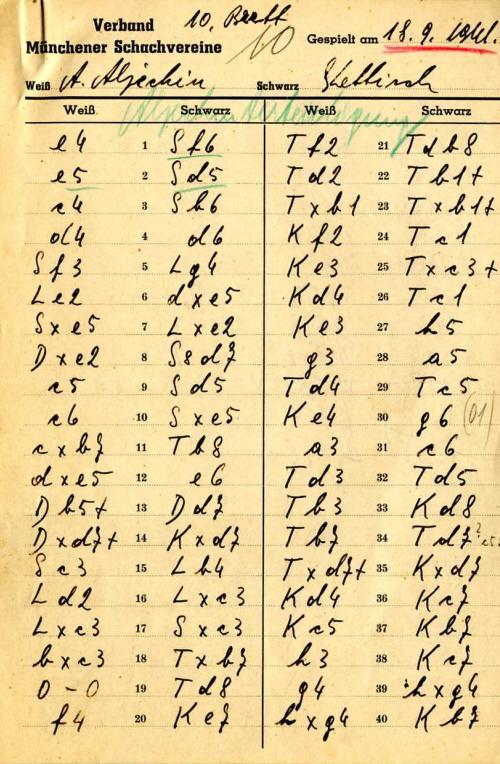 10. Brett
Verband
Münchener Schachvereine
10
Gespielt am 18. 9. 1941.
Weiß A. Aljechin Schwarz
Weiß Schwarz Weiß Schwarz
e4 1 Sf6 Tf2 21 Tdb8
e5 2 Sd5 Td2 22 Tb1+
c4 3 Sb6 Txb1 23 Txb1+
d4 4 d6 Kf2 24 Tc1
Sf3 5 Lg4 Ke3 25 Txc3+
Le2 6 dxe5 Kd4 26 Tc1
Sxe5 7 Lxe2 Ke3 27 h5
Dxe2 8 S8d7 g3 28 a5
c5 9 Sd5 Td4 29 Tc5
e6 10 Sxe5 Ke4 30 g6 (01)
cxb7 11 Tb8 a3 31 c6
dxe5 12 e6 Td3 32 Td5
Db5+ 13 Dd7 Tb3 33 Kd8
Dxd7+ 14 Kxd7 Tb7 34 Td7?
Sc3 15 Lb4 Txd7+ 35 Kxd7
Ld2 16 Lxc3 Kd4 36 Kc7
Lxc3 17 Sxc3 Kc5 37 Kb7
bxc3 18 Txb7 h3 38 Kc7
0-0 19 Td8 g4 39 hxg4
f4 20 Ke7 hxg4 40 Kb7